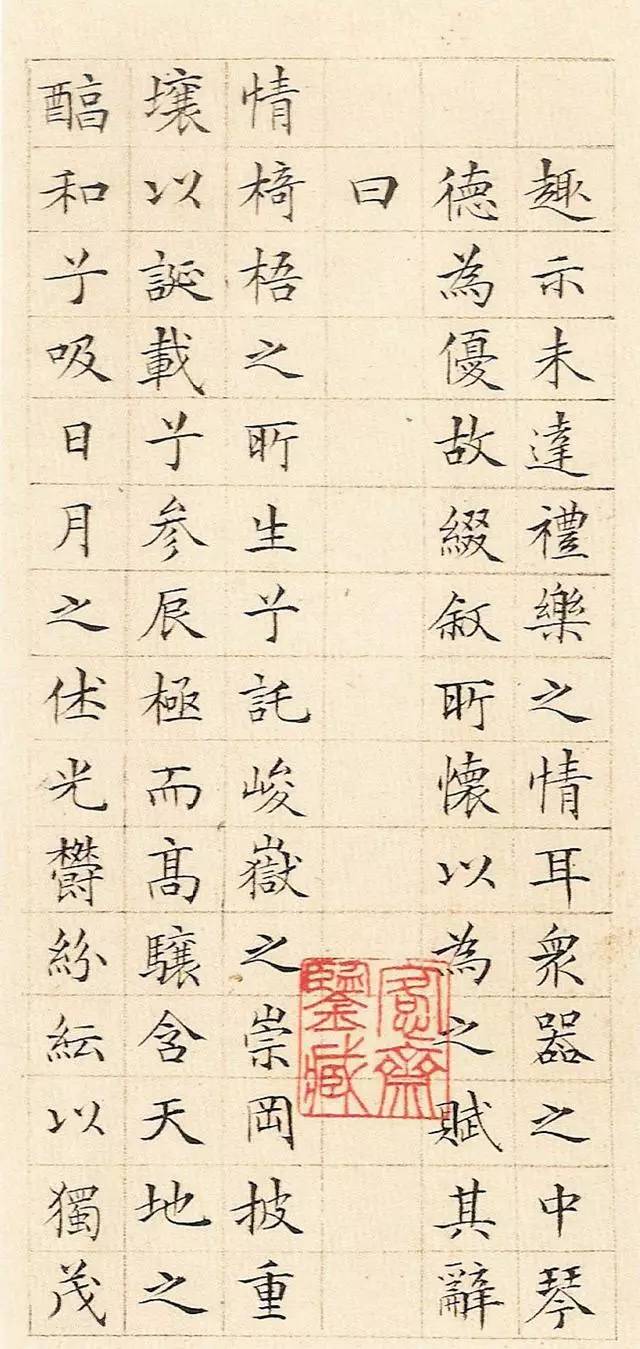 趣示未達禮樂之情耳衆器之中琴
德為優故綴敘所懷以為之賦其辭
曰
情椅梧之所生兮託峻嶽之崇岡披重
壤以誕載兮参辰極而髙驤含天地之
醕和兮吸日月之休光欝紛紜以獨茂
愙齋
鑒藏